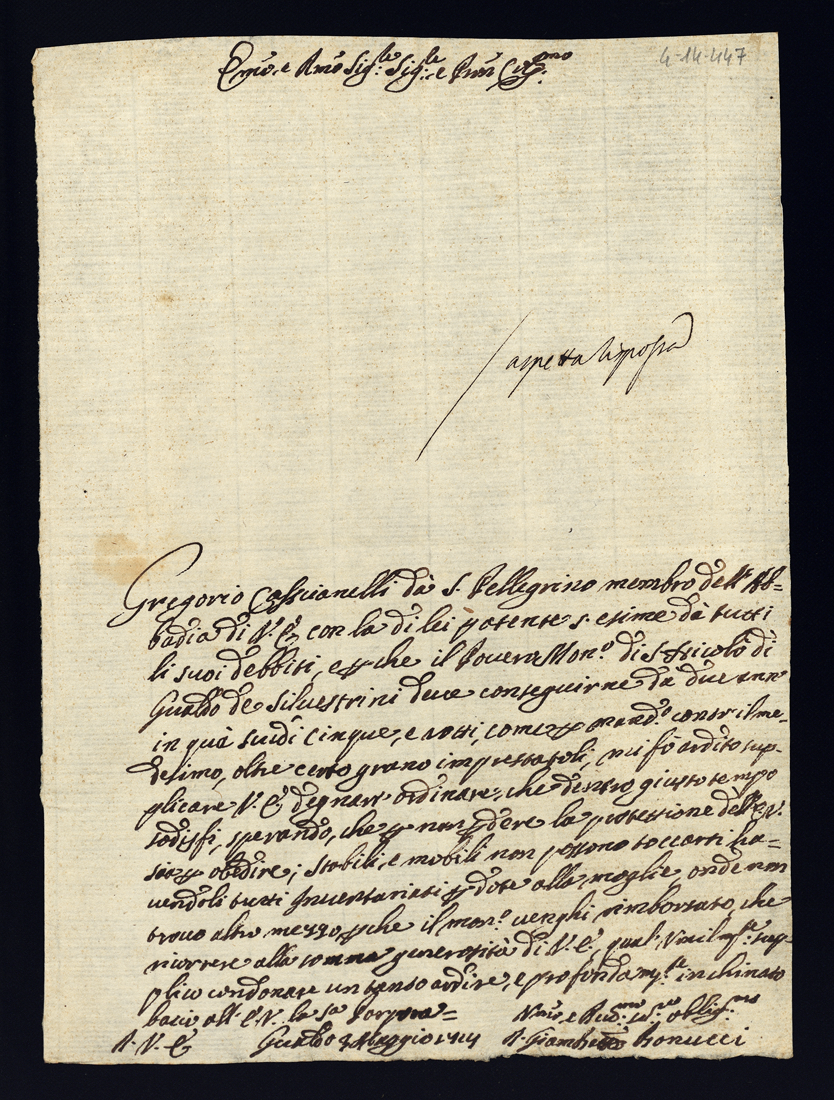 Em̃o, e Rm̃o Sig.re Sig.re e Pron Col.mo
4-14-447
aspetta risposta
Gregorio Cascianelli dà S. Pellegrino membro dell' Ab=
badia di V. E. con la di lei patente s. esime dà tutti
li suoi debbiti, e pche il Povero Mon.o di S. Nicolò di
Gualdo de Silvestrini deve conseguirne dà due anni
in quà scudi cinque, e rotti, come p mand.o contr'il me-
desimo, oltre certo grano imprestatoli, mi fò ardito sup-
plicare V. E. degnarsi ordinare, che dentro giusto tempo
sodisfi, sperando, che p non pdere la protessione dell' E. V.
sia p obedire; stabili, e mobili non possono toccarsi ha=
vendoli tutti Inventariati p dote alla moglie, onde non
trovo altro mezzo pche il mon.o venghi rimborsato, che
ricorrere alla somma generosità di V. E., qual' Umilm.te sup-
plico condonare un tanto ardire, e profondam.te inchinato
bacio all' E. V. la Sa. Porpora=
D. V. E. Gualdo 3 Maggio 1714
Um̃o, e Rev.mo obblig.mo
D. Giamb̃ta Bonucci